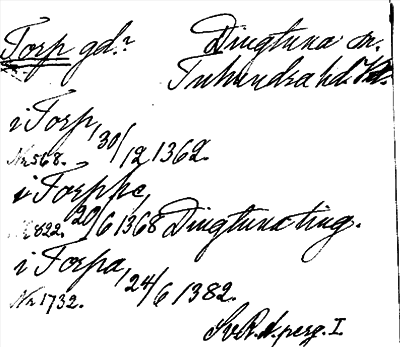 Torp gd.? Dingtuna sn.
Tuhundra hd. Vstm.
i Torp, 30/12 1362.
Nr 568.
i Torppe, 20/6 1368 Dingtuna ting.
Nr 822.
i Torpa, 24/6 1382.
Nr 1732.
Sv. R. A. perg. I.